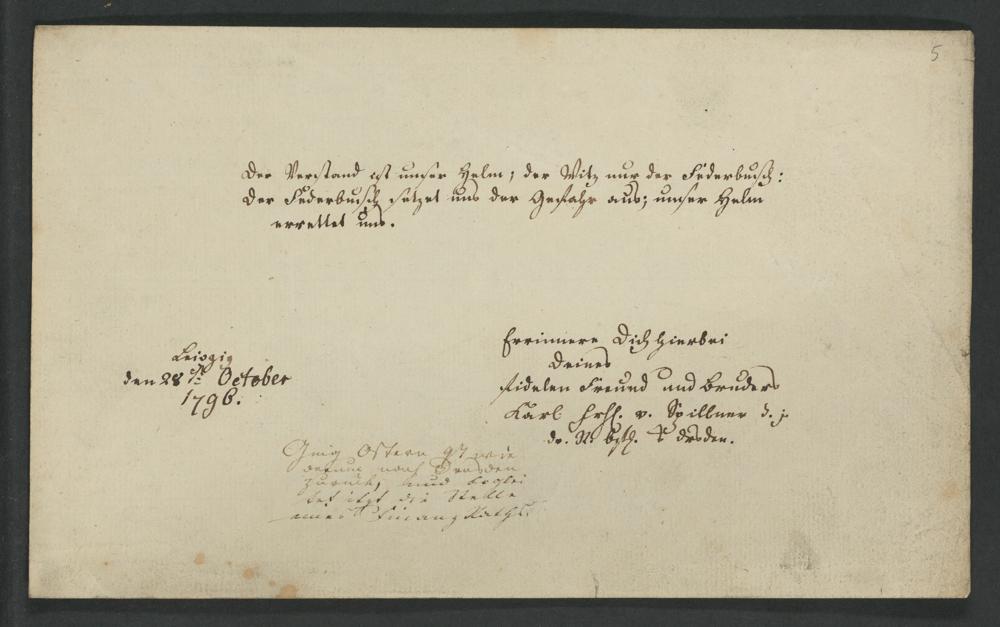 5
Der Verstand ist unser Helm; der Witz nur der Federbusch:
Der Federbusch setzet uns der Gefahr aus; unser Helm
errettet uns.
Leipzig
den 28 October
1796.
Errinnere Dich hierbei
Deines
fidelen Freund und Bruders
Karl v. Spillner d. j.
Dresden.
Ging Ostern 97 wie
derum nach Dresden
zurück, und beglei
tet itzt die Stelle
eines Finanz Raths.